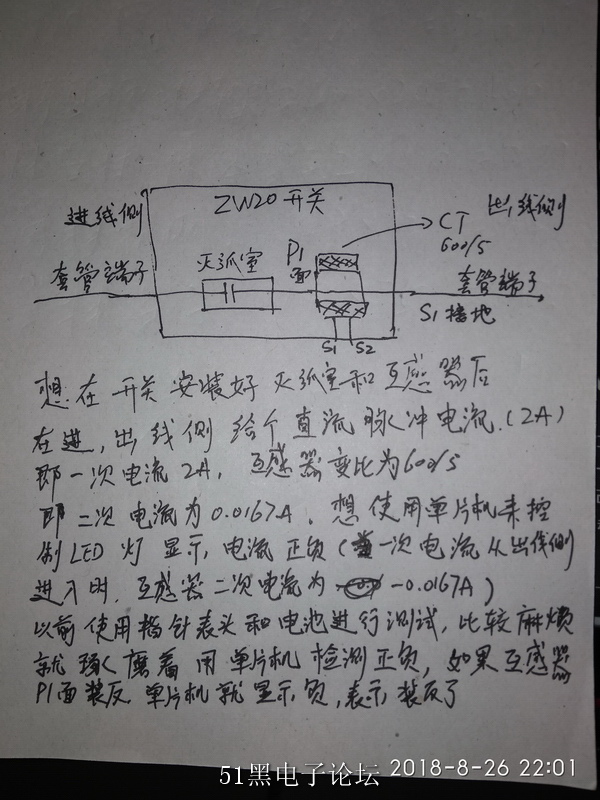 ZW20开关
进线侧
出线侧
CT
600/5
灭弧室
P1
面
套管端子
套管端子
S1 接地
S1 S2
想在开关安装好灭弧室和互感器后
在进,出线侧给个直流脉冲电流.(2A)
即一次电流2A, 互感器变比为600/5
即二次电流为0.0167A. 想使用单片机来控
制LED灯显示,电流正负(一次电流从出线侧
进入时,互感器二次电流为 -0.0167A)
以前使用指针表头和电池进行测试,比较麻烦
就琢磨着用单片机检测正负,如果互感器
P1面装反 单片机就显示负,表示装反了
51黑电子论坛 2018-8-26 22:01